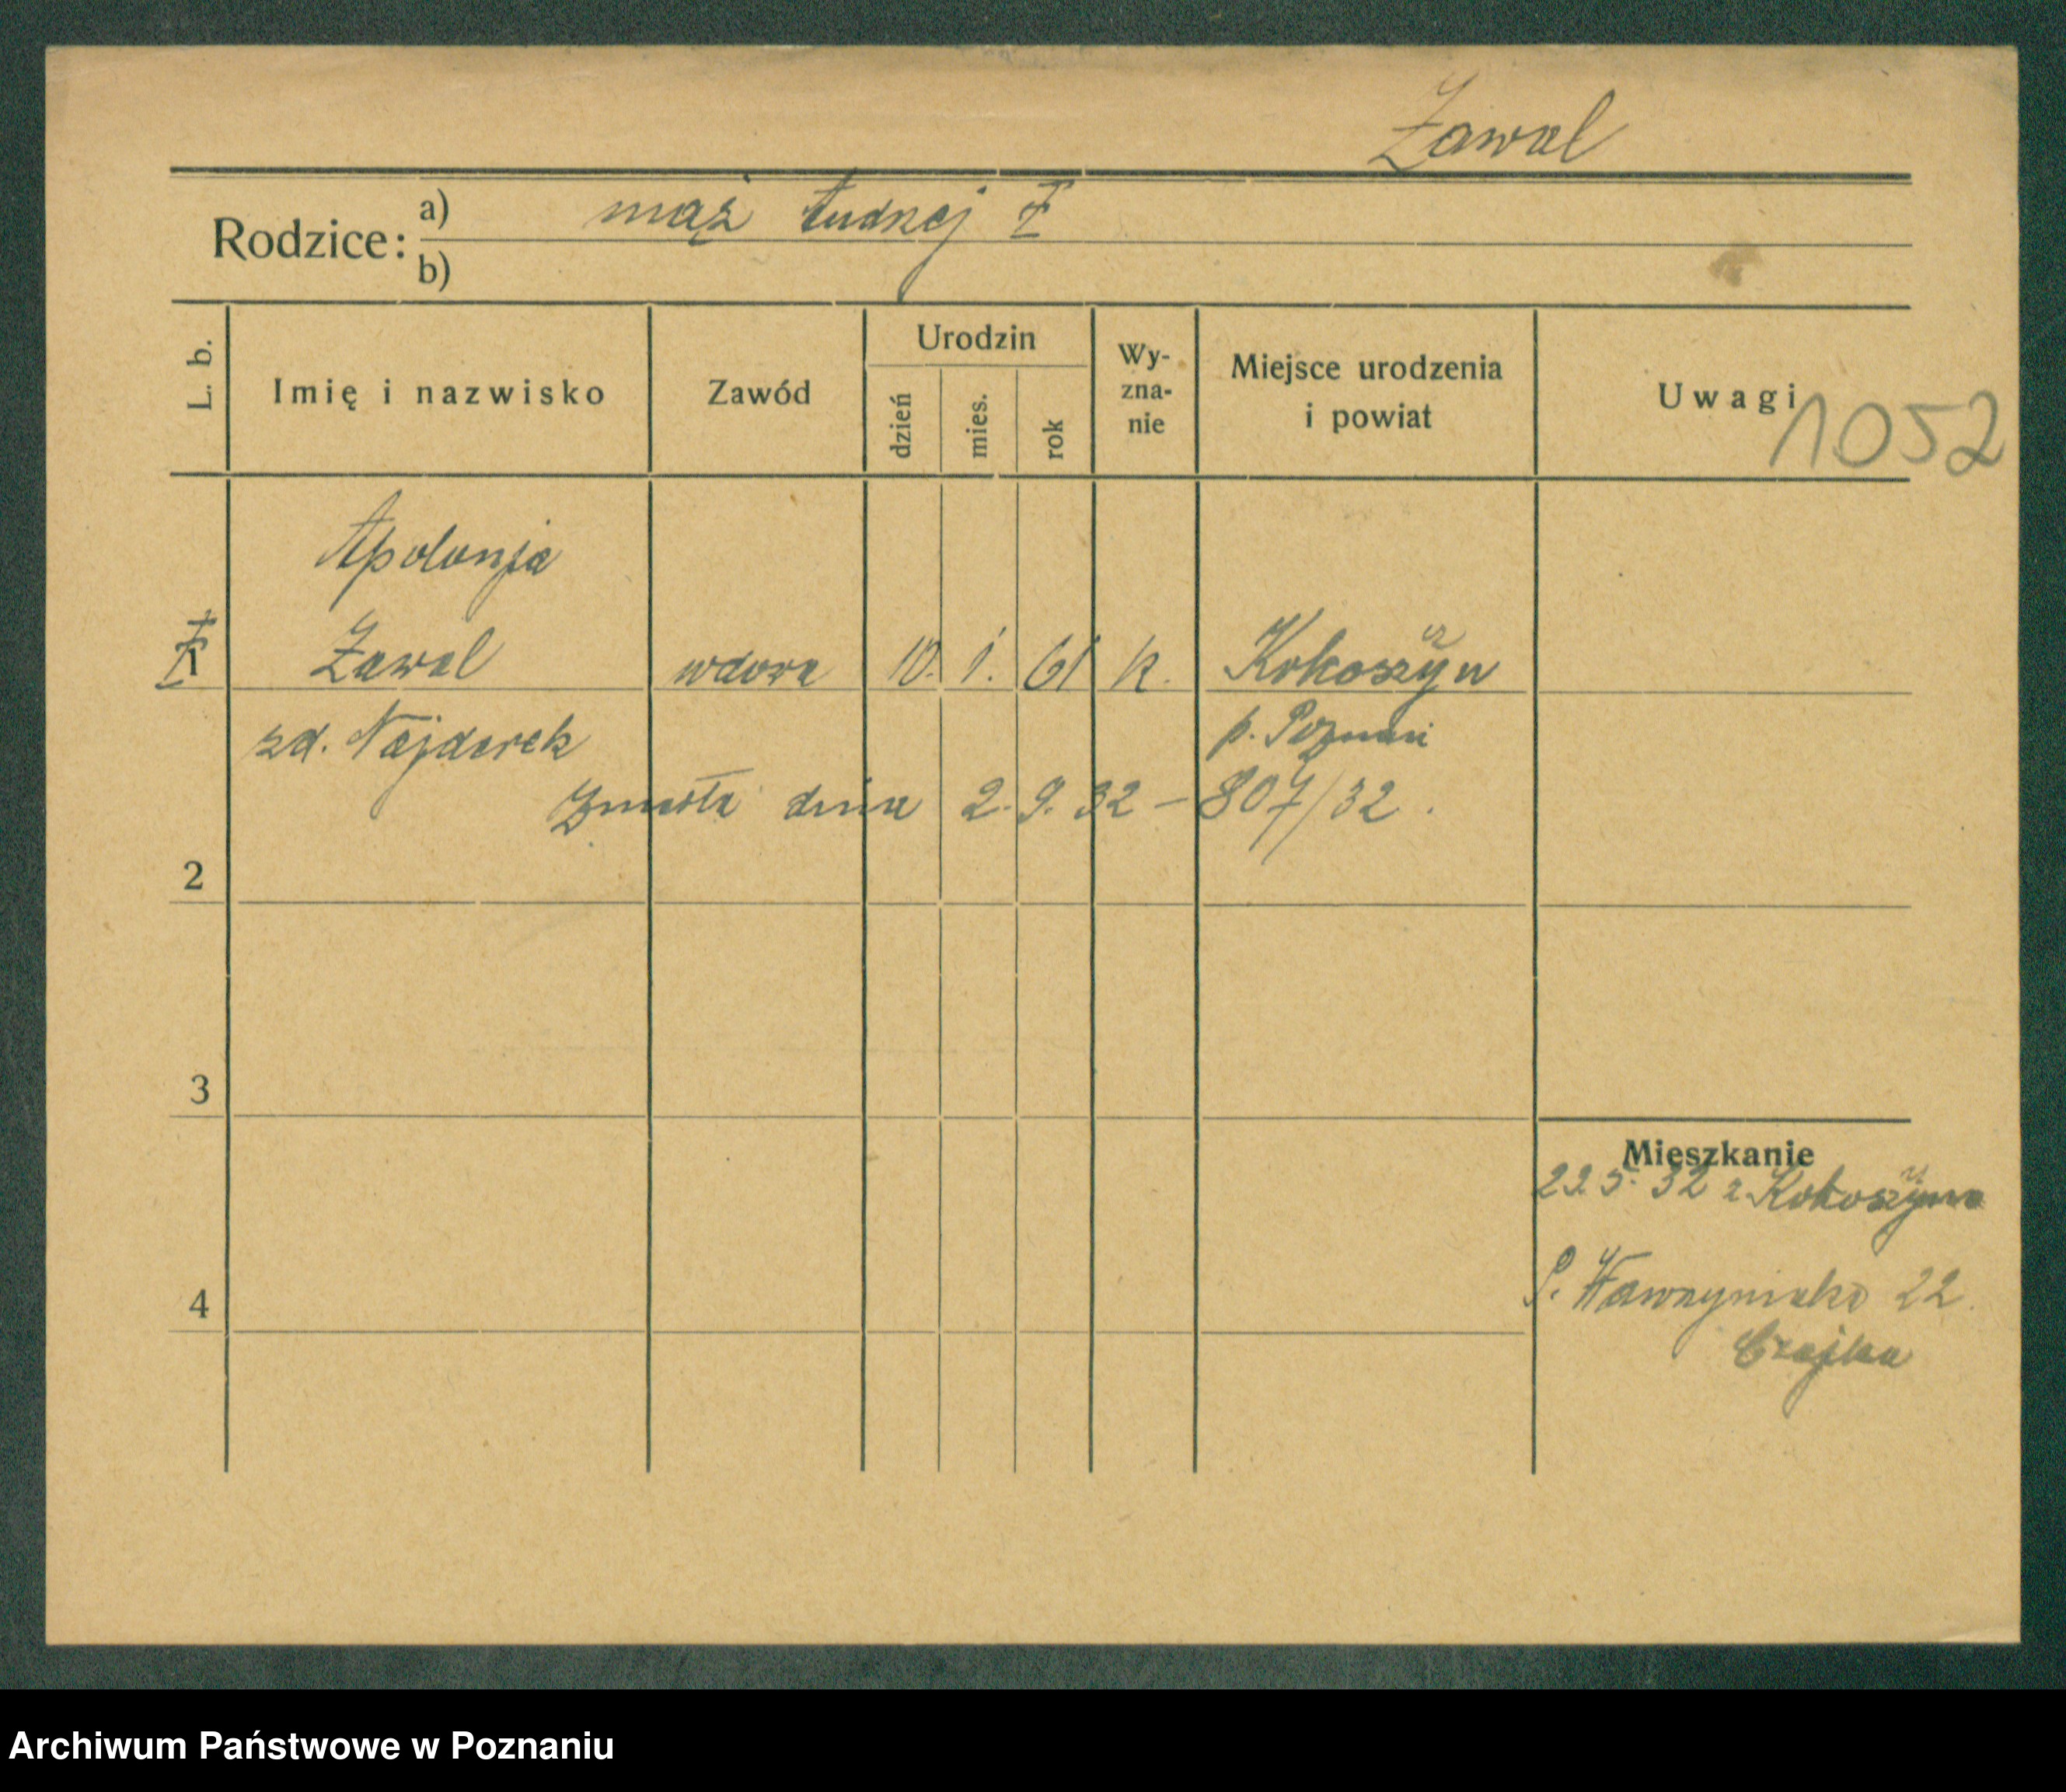 Zawal
Rodzice: a) mąż
b)
L. b.
Imię i nazwisko
Zawód
Urodzin
dzień
mies.
rok
Wy-
zna-
nie
Miejsce urodzenia
i powiat
Uwagi
1052
Apolonja
1 Zawal wdowa 10. 1. 61 k. Kokoszyn
zd. Najderek p. Poznań
Zmarła dnia 2. 9. 32 – 807/32.
2
3
Mieszkanie
32 z Kokoszyna
4
P. Wawrzyniaka 22.
Czajka
Archiwum Państwowe w Poznaniu